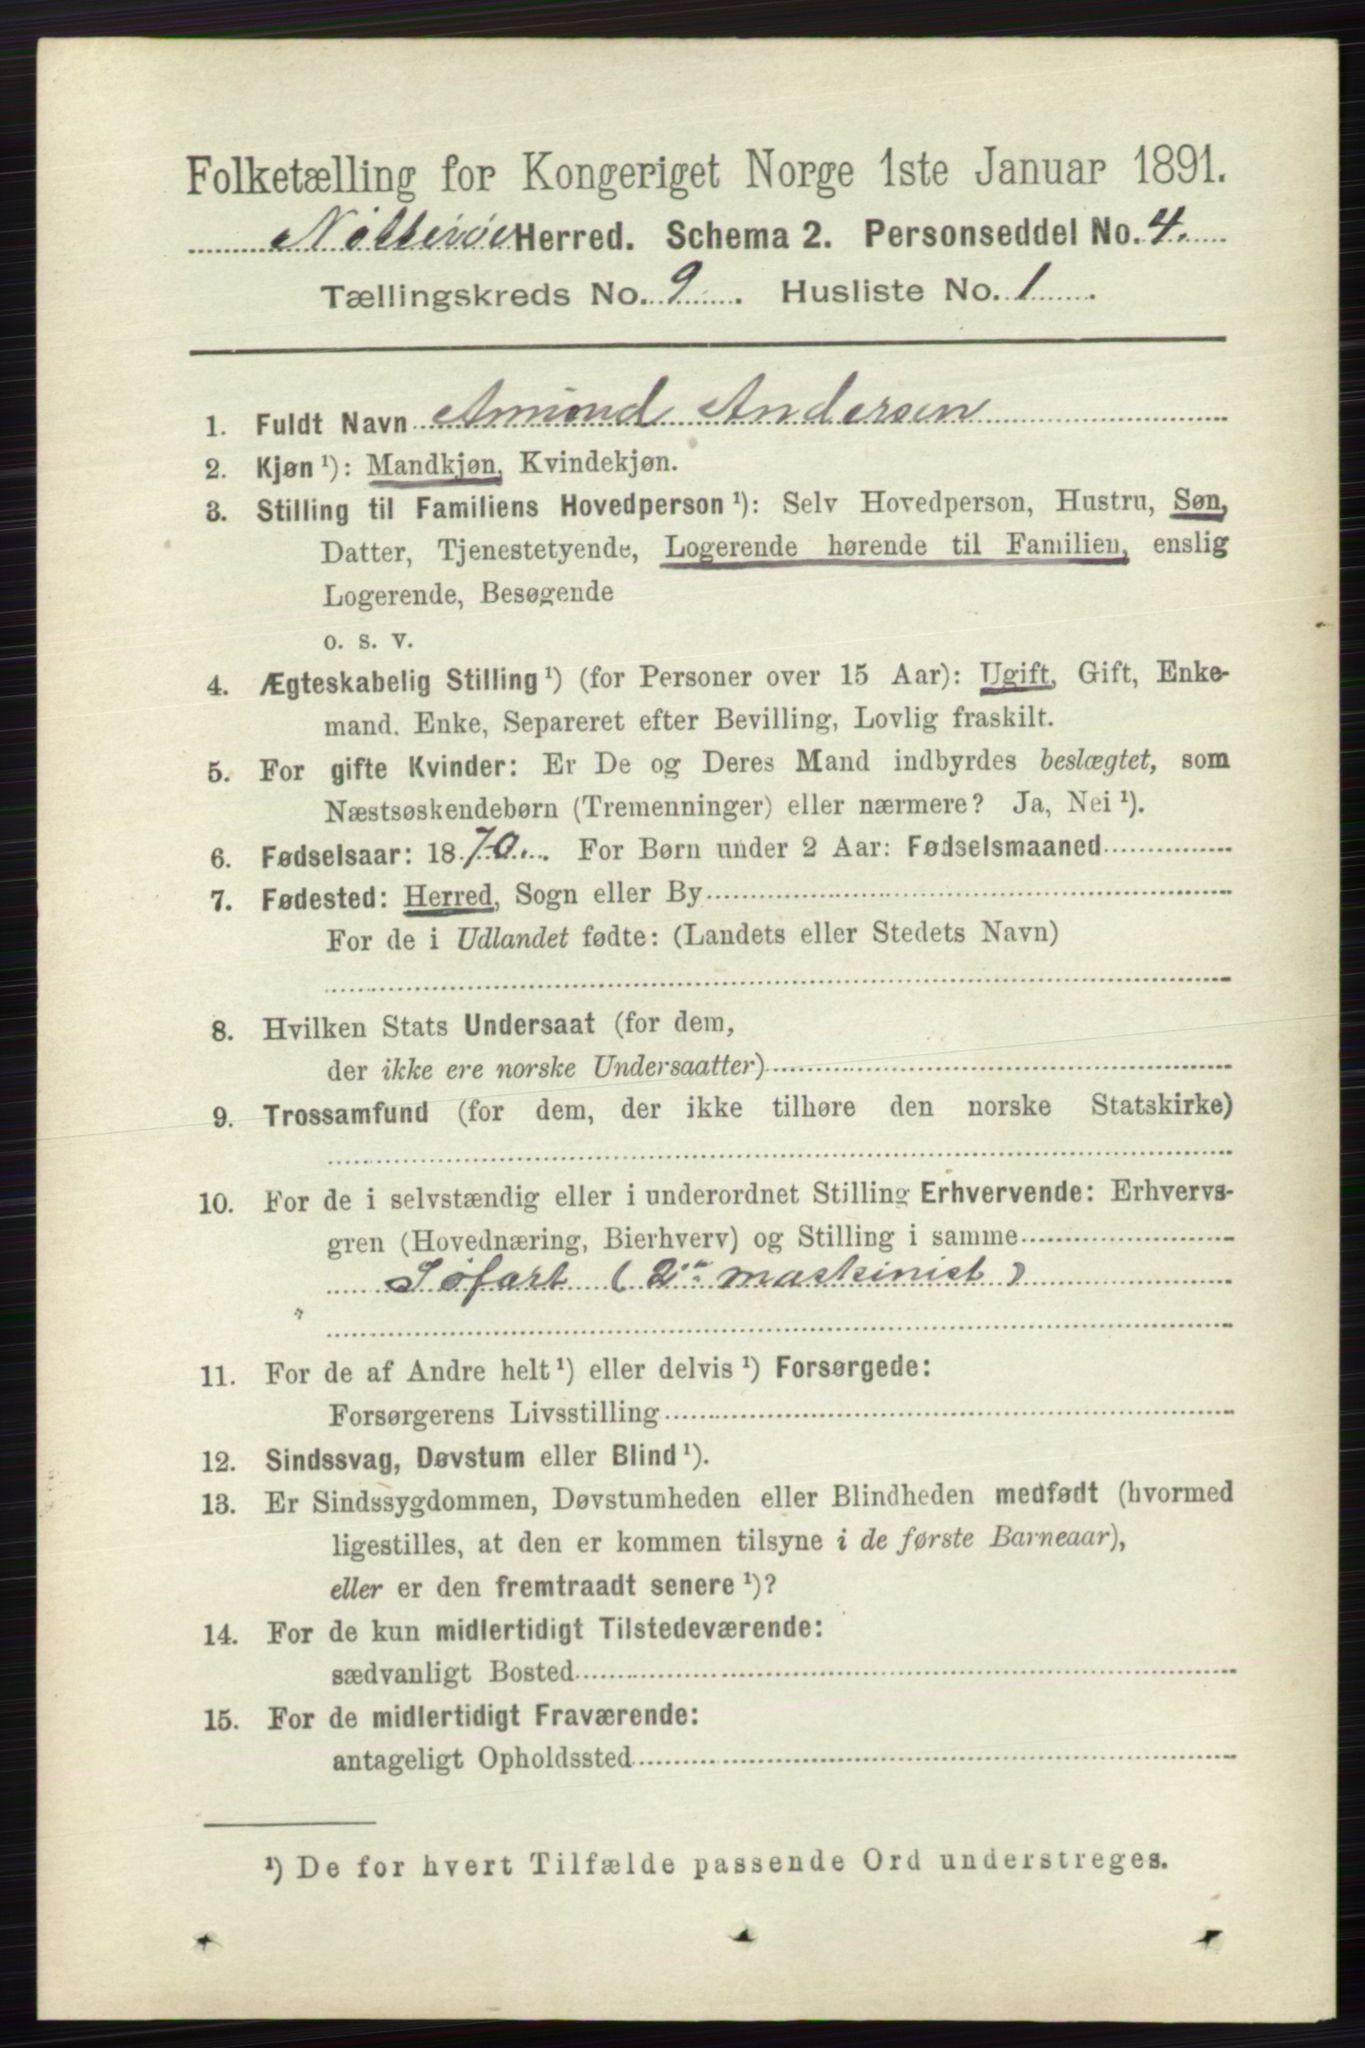 Folketælling for Kongeriget Norge 1ste Januar 1891.
Nøtterøe Herred. Schema 2. Personseddel No. 4.
Tællingskreds No. 9. Husliste No. 1.
1. Fuldt Navn Amund Andersen
2. Kjøn ¹): Mandkjøn, Kvindekjøn.
3. Stilling til Familiens Hovedperson ¹): Selv Hovedperson, Hustru, Søn,
Datter, Tjenestetyende, Logerende hørende til Familien, enslig
Logerende, Besøgende
o. s. v.
4. Ægteskabelig Stilling ¹) (for Personer over 15 Aar): Ugift, Gift, Enke-
mand. Enke, Separeret efter Bevilling, Lovlig fraskilt.
5. For gifte Kvinder: Er De og Deres Mand indbyrdes beslægtet, som
Næstsøskendebørn (Tremenninger) eller nærmere? Ja, Nei ¹).
6. Fødselsaar: 1870. For Børn under 2 Aar: Fødselsmaaned
7. Fødested: Herred, Sogn eller By
For de i Udlandet fødte: (Landets eller Stedets Navn)
8. Hvilken Stats Undersaat (for dem,
der ikke ere norske Undersaatter)
9. Trossamfund (for dem, der ikke tilhøre den norske Statskirke)
10. For de i selvstændig eller i underordnet Stilling Erhvervende: Erhvervs-
gren (Hovednæring, Bierhverv) og Stilling i samme
Søfart (2den maskinist)
11. For de af Andre helt ¹) eller delvis ¹) Forsørgede:
Forsørgerens Livsstilling
12. Sindssvag, Døvstum eller Blind ¹).
13. Er Sindssygdommen, Døvstumheden eller Blindheden medfødt (hvormed
ligestilles, at den er kommen tilsyne i de første Barneaar),
eller er den fremtraadt senere ¹)?
14. For de kun midlertidigt Tilstedeværende:
sædvanligt Bosted
15. For de midlertidigt Fraværende:
antageligt Opholdssted
¹) De for hvert Tilfælde passende Ord understreges.